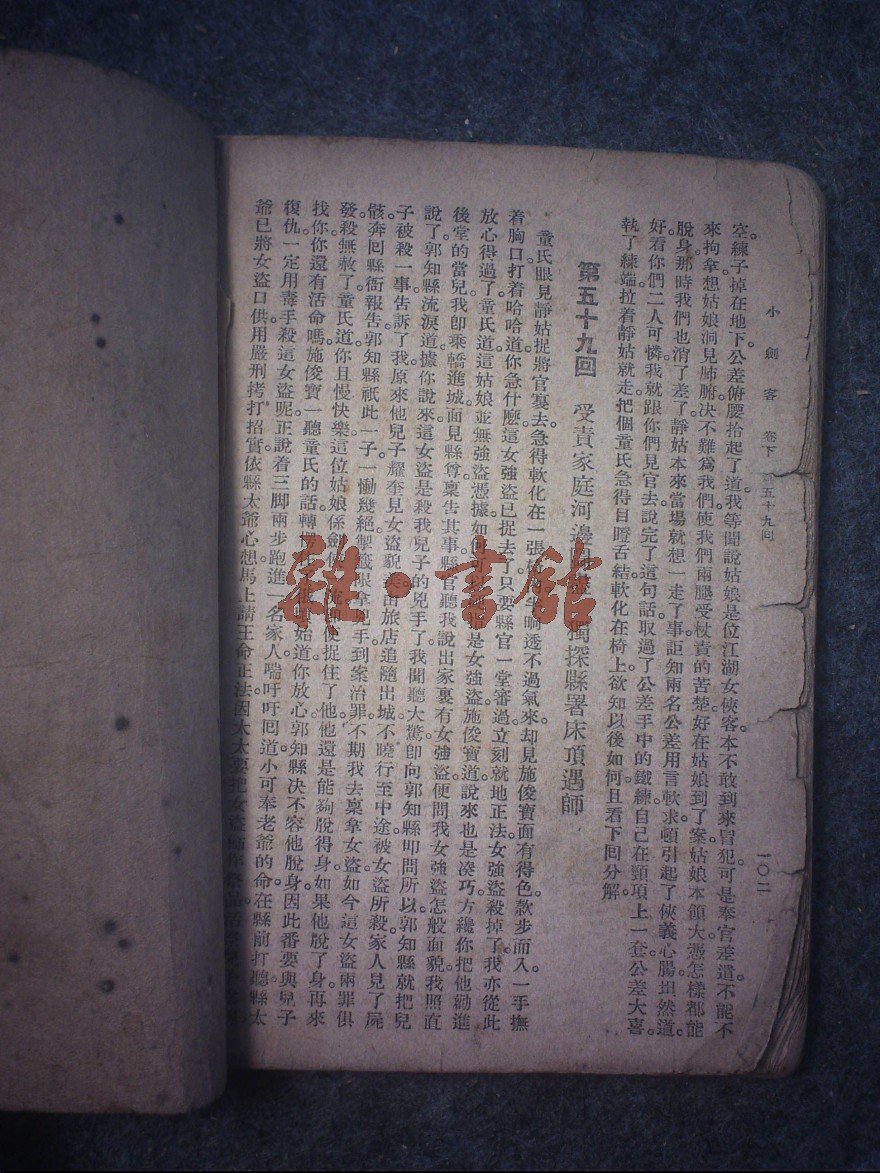 小劍客 卷下 五十九回 一〇二
空。練子掉在地下。公差俯腰拾起了道。我等聞說姑娘是位江湖女俠客。本不敢到來冒犯。可是奉官差遣。不能不
來拘拿。想姑娘洞見肺腑。決不難爲我們。使我們兩腿受杖責的苦楚。好在姑娘到了案。姑娘本領大。憑怎樣都能
脫身。那時我們也消了差了。靜姑本來當場就想一走了事。詎知兩名公差用言軟求。頓引起了俠義心腸。坦然道。
好。看你們二人可憐。我就跟你們見官去。說完了這句話。取過了公差手中的鐵練。自己在頸項上一套。公差大喜。
執了練端。拉着靜姑就走。把個童氏急得目瞪舌結。軟化在椅上。欲知以後如何。且看下回分解。
第五十九回 受責家庭河邊 獨探縣署床頂遇師
童氏眼見靜姑捉將官裏去。急得軟化在一張 半晌透不過氣來。却見施俊寶面有得色。散步而入。一手撫
着胸口。打着哈哈道。你急什麽。這女強盜已捉去了。只要縣官一堂審過。立刻就地正法。女強盜殺掉了。我亦從此
放心得過了。童氏道。這姑娘並無強盜憑據。如何可以 是女強盜。施俊寶道。說來也是湊巧。方纔你把他勸進
後堂的當兒。我卽乘轎進城。面見縣尊。稟告其事。縣官聽我說出家裏有女強盜。便問我女強盜怎般面貌。我照直
說了。郭知縣流淚道。據你說來。這女盜是殺我兒子的兇手了。我聞聽大驚。卽向郭知縣叩問所以。郭知縣就把兒
子被殺一事告訴了我。原來他兒子耀奎。見女盜貌美。由旅店追隨出城。不曉行至中途。被女盜所殺。家人見了屍
骸。奔囘縣衙報告。郭知縣祇此一子。一慟幾絕。掣籤限拿兇手到案治罪。不期我去稟拿女盜。如今這女盜兩罪俱
發。殺無赦了。童氏道。你且慢快樂。這位姑娘係劍俠 卽使捉住了他。他還是能夠脫得身。如果他脫了身。再來
找你。你還有活命嗎。施俊寶一聽童氏的話。轉 始道。你放心。郭知縣決不容他脫身。因此番要與兒子
復仇。一定用毒手殺這女盜呢。正說着。三脚兩步跑進一名家人。喘吁吁囘道。小可奉老爺的命。在縣前打聽。縣太
爺已將女盜口供。用嚴刑拷打招實。依縣太爺心想。馬上請王命正法。因太太要把女盜